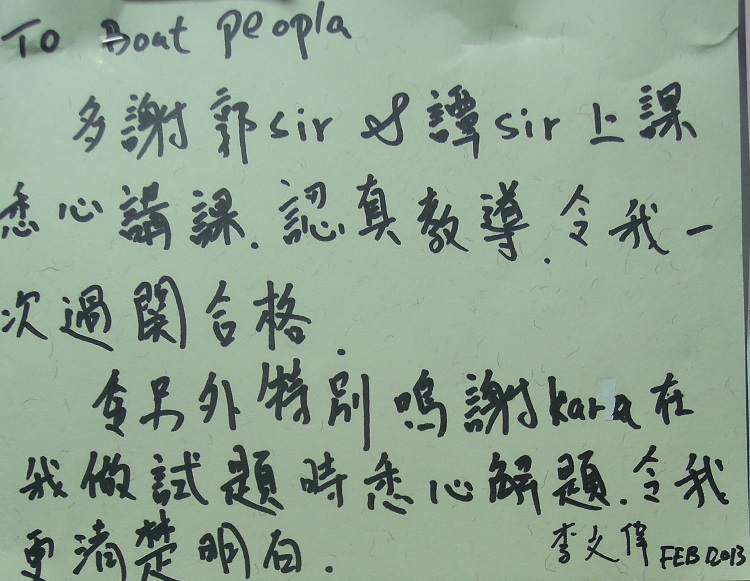 To Boat peopla
多謝郭sir & 譚sir上課
悉心講課.認真教導.令我一
次過関合格.
另外特別鳴謝karla在
我做試題時悉心解題.令我
更清楚明白.
李文偉 FEB 2013